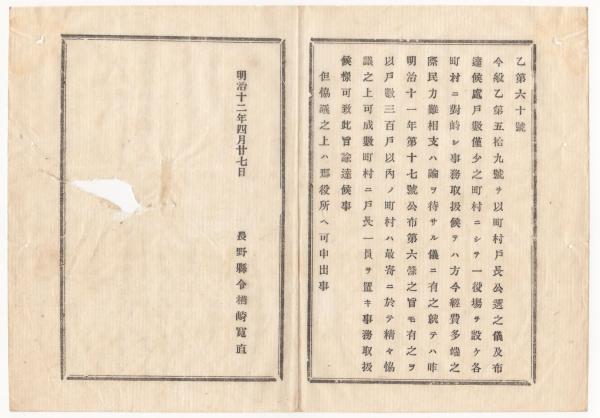 乙第六十號
今般乙第五拾九號ヲ以町村戸長公選之儀及布
達候處戸數僅少之町村ニシテ一役場ヲ設ケ各
町村ニ對峙シ事務取扱候テハ方今經費多端之
際民力難相支ハ論ヲ待サル儀ニ有之就テハ昨
明治十一年第十七號公布第六條之旨モ有之ヲ
以戸數三百戸以內ノ町村ハ最寄ニ於テ精々協
議之上可成數町村ニ戸長一員ヲ置キ事務取扱
候樣可致此旨諭達候事
但協議之上ハ郡役所ヘ可申出事
明治十二年四月廿七日
長野縣令楢崎寬直